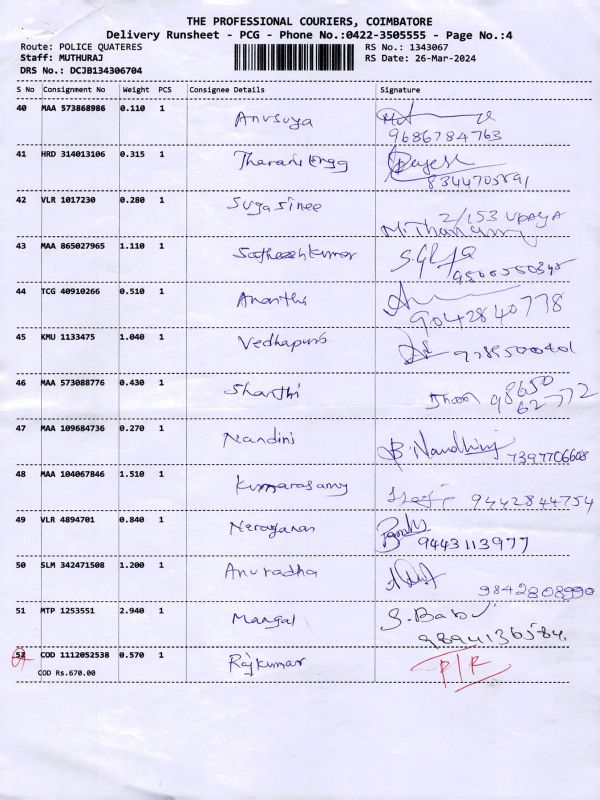 THE PROFESSIONAL COURIERS, COIMBATORE
Delivery Runsheet - PCG - Phone No.:0422-3505555 - Page No.:4
Route: POLICE QUATERES RS No.: 1343067
Staff: MUTHURAJ RS Date: 26-Mar-2024
DRS No.: DCJB134306704
S No Consignment No Weight PCS Consignee Details Signature
40 MAA 573868986 0.110 1 Anusuya
9686784763
41 HRD 314013106 0.315 1 Rajesh
8344705891
42 VLR 1017230 0.280 1 Sugasinee 2/153
43 MAA 865027965 1.110 1 Satheeshkumar
44 TCG 40910266 0.510 1 Ananthi
9042840778
45 KMU 1133475 1.040 1
46 MAA 573088776 0.430 1 Shanthi 98650
62772
47 MAA 109684736 0.270 1 Nandini B. Nandhini 7397706608
48 MAA 104067846 1.510 1 Kumarasamy 9442844754
49 VLR 4894701 0.840 1 Narayanan
9443113977
50 SLM 342471508 1.200 1 Anuradha
9842808990
51 MTP 1253551 2.940 1 Mangal S. Babu
9894136584.
52 COD 1112052538 0.570 1 Rajkumar
COD Rs.670.00